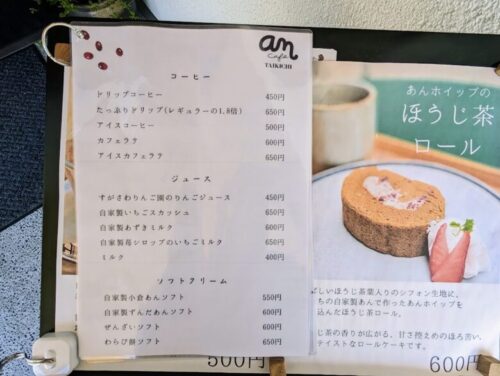 an
cafe
TAIKICHI
コーヒー
ドリップコーヒー 450円
たっぷりドリップ(レギュラーの1.8倍) 650円
アイスコーヒー 500円
カフェラテ 600円
アイスカフェラテ 650円
ジュース
すがさわりんご園のりんごジュース 450円
自家製いちごスカッシュ 650円
自家製あずきミルク 600円
自家製苺シロップのいちごミルク 650円
ミルク 400円
ソフトクリーム
自家製小倉あんソフト 550円
自家製ずんだあんソフト 600円
ぜんざいソフト 600円
わらび餅ソフト 650円
あんホイップの
ほうじ茶
ロール
ばしいほうじ茶葉入りのシフォン生地に、
ちの自家製あんで作ったあんホイップを
込んだほうじ茶ロール。
じ茶の香りが広がる、甘さ控えめのほろ苦い、
テイストなロールケーキです。
500円
600円